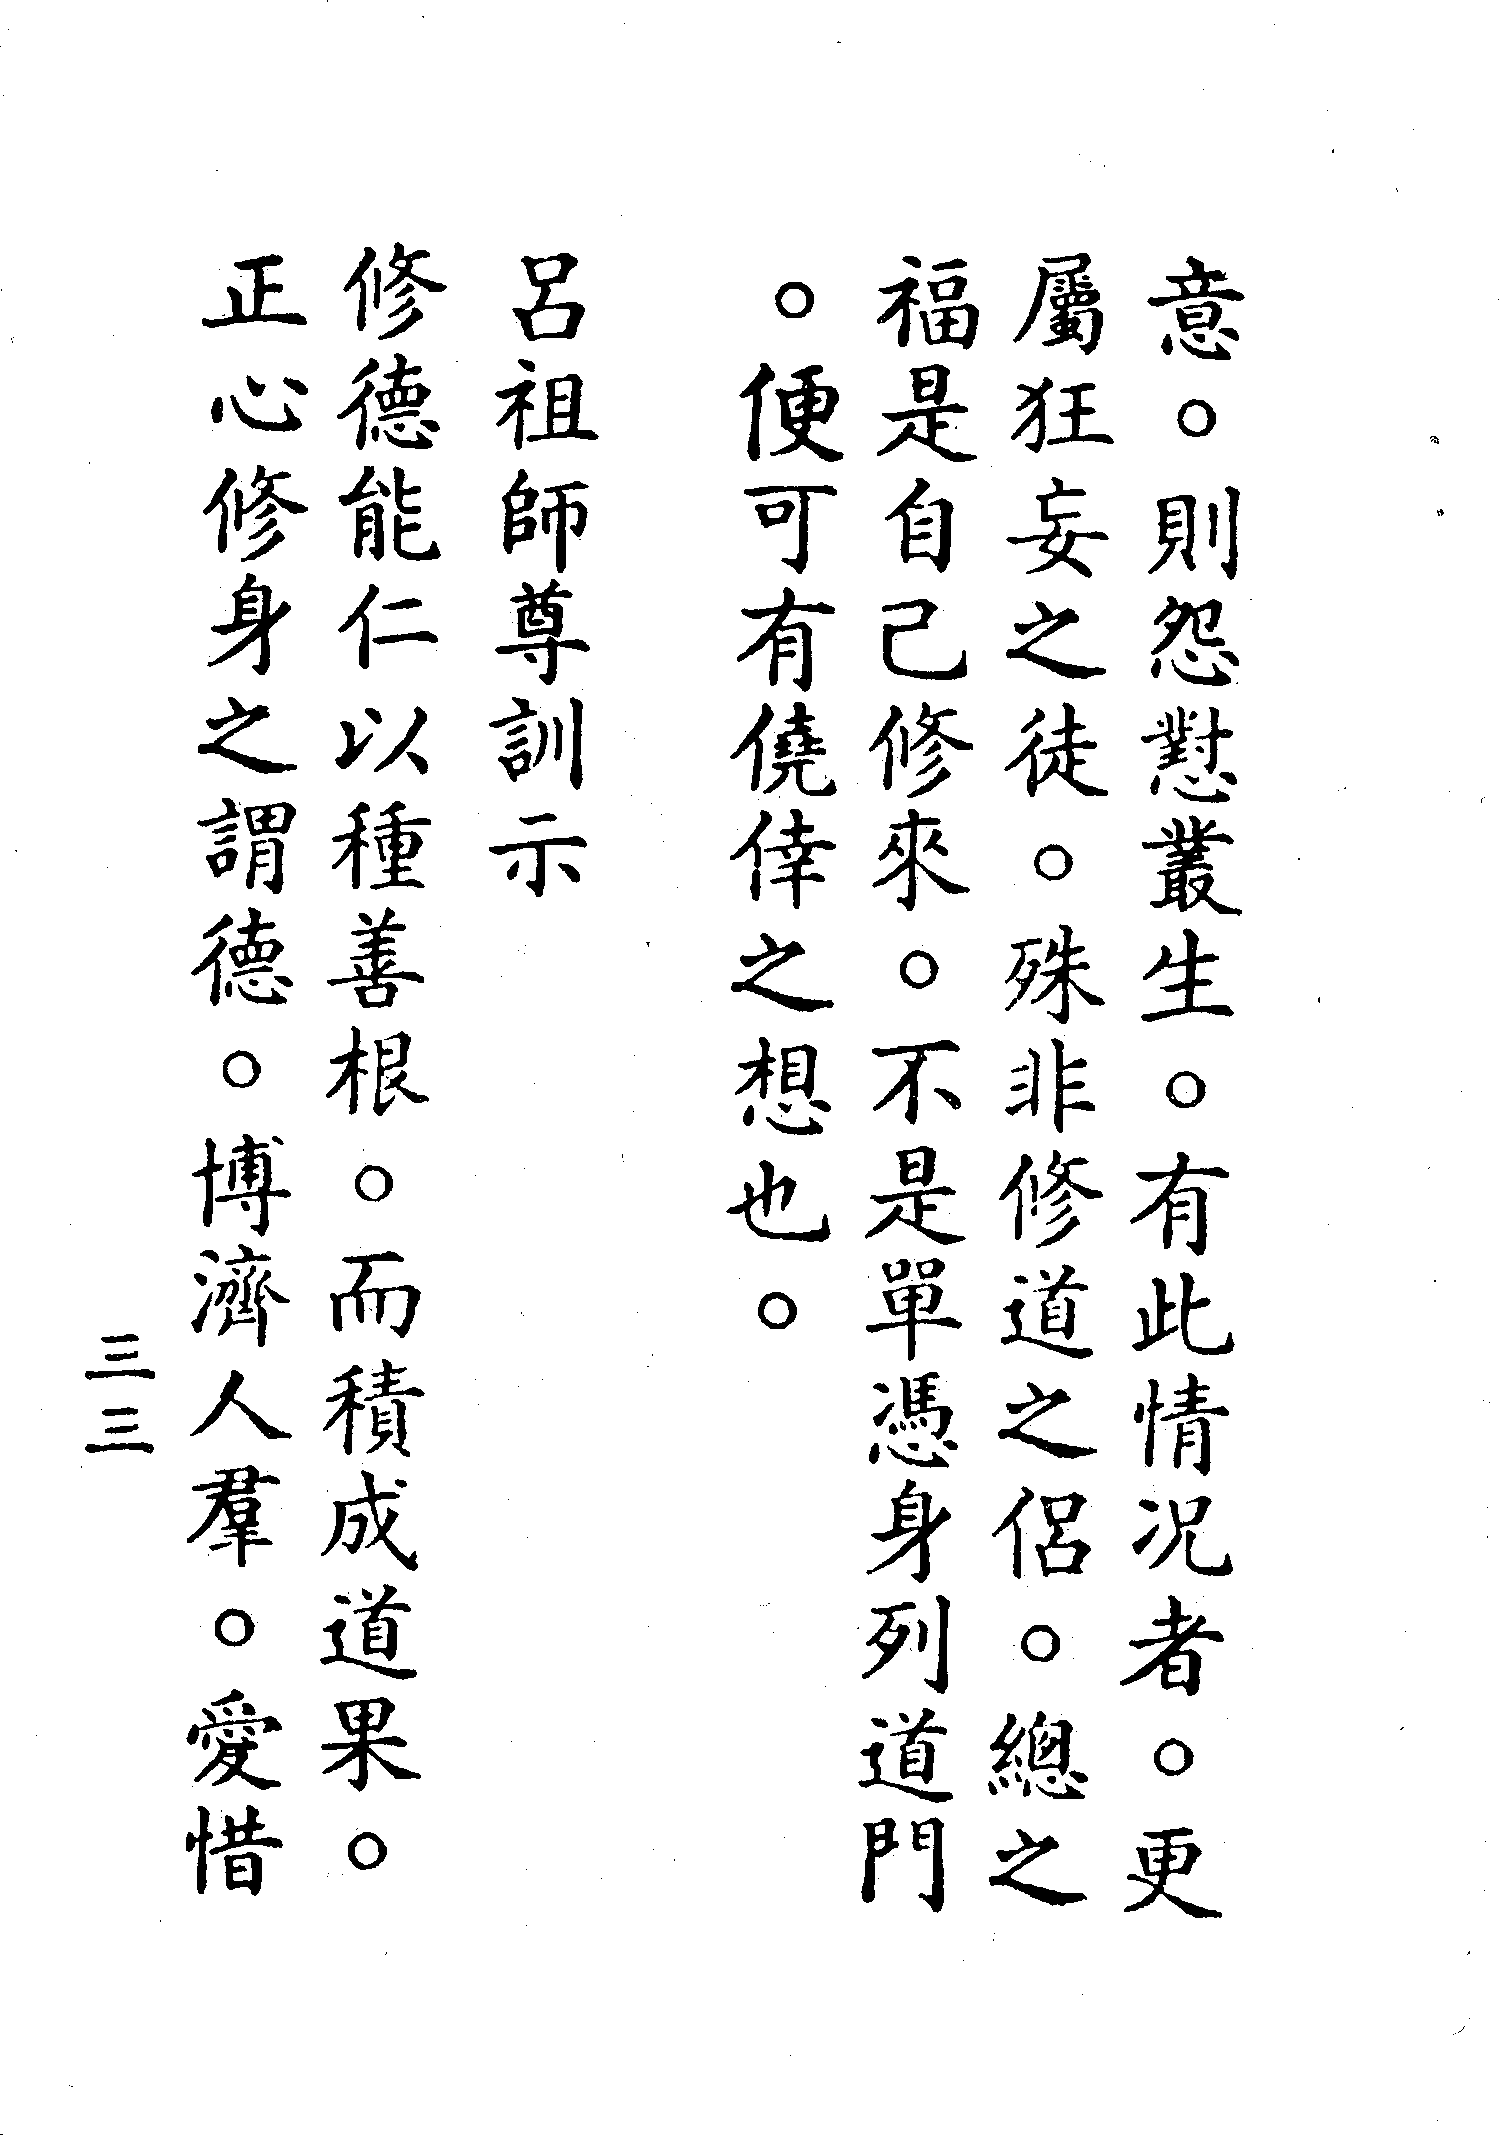 意。則怨懟叢生。有此情況者。更
屬狂妄之徒。殊非修道之侶。總之
福是自己修來。不是單憑身列道門
。便可有僥倖之想也。
呂祖師尊訓示
修德能仁以種善根。而積成道果。
正心修身之謂德。博濟人羣。愛惜
三三